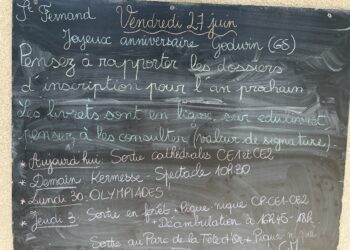 St Fernand
Vendredi 27 juin
Joyeux anniversaire Godwin (GS)
Pensez à rapporter les dossiers
d'inscription pour l'an prochain
Les livrets sont en ligne, sur educlivret
pensez à les consulter (valeur de signature).
* Aujourd'hui: Sortie cathédrales CE1 CE2
* Demain Kermesse - Spectacle 10H30
* Lundi 30: OLYMPIADES
* Jeudi 3: Sortie en forêt + Pique nique CP CE1 CE2
+ Déambulation à 10H45-12H
Sortie au Parc de la Tête d'Or + Pique nique